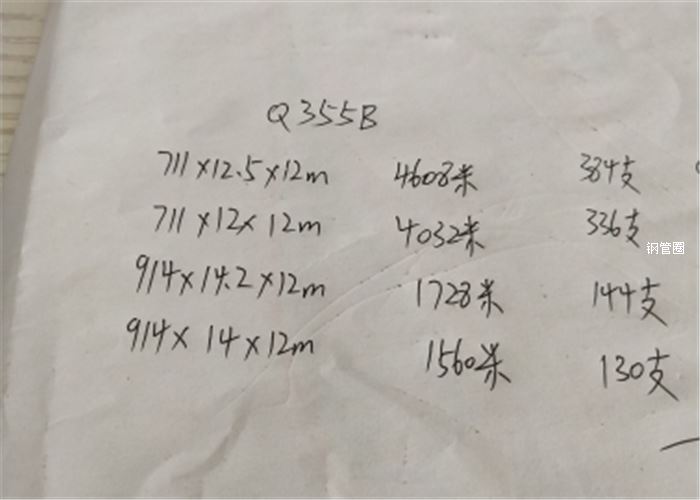 Q355B
711×12.5×12m 4608米 384支
711×12×12m 4032米 336支
钢管圈
914×14.2×12m 1728米 144支
914×14×12m 1560米 130支